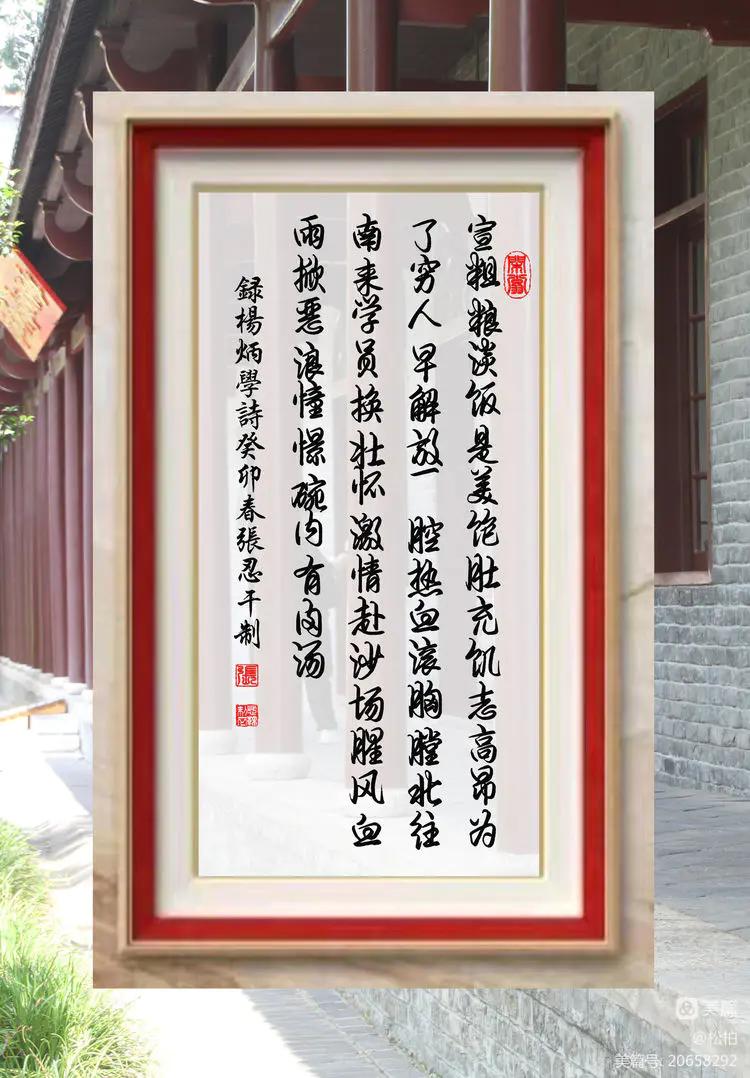 宣粗粮淡饭是美饱肚充饥志高昂为
了穷人早解放一腔热血滚胸膛北往
南来学员换壮怀激情赴沙场腥风血
雨掀恶浪憧憬碗内有肉汤
録楊炳學詩癸卯春張忍干制
張
美篇
@松柏
美篇号: 20658292